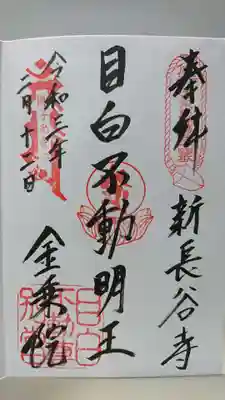 奉拝
新長谷寺
目白不動明王
令和三年
二月十三日
金乗院